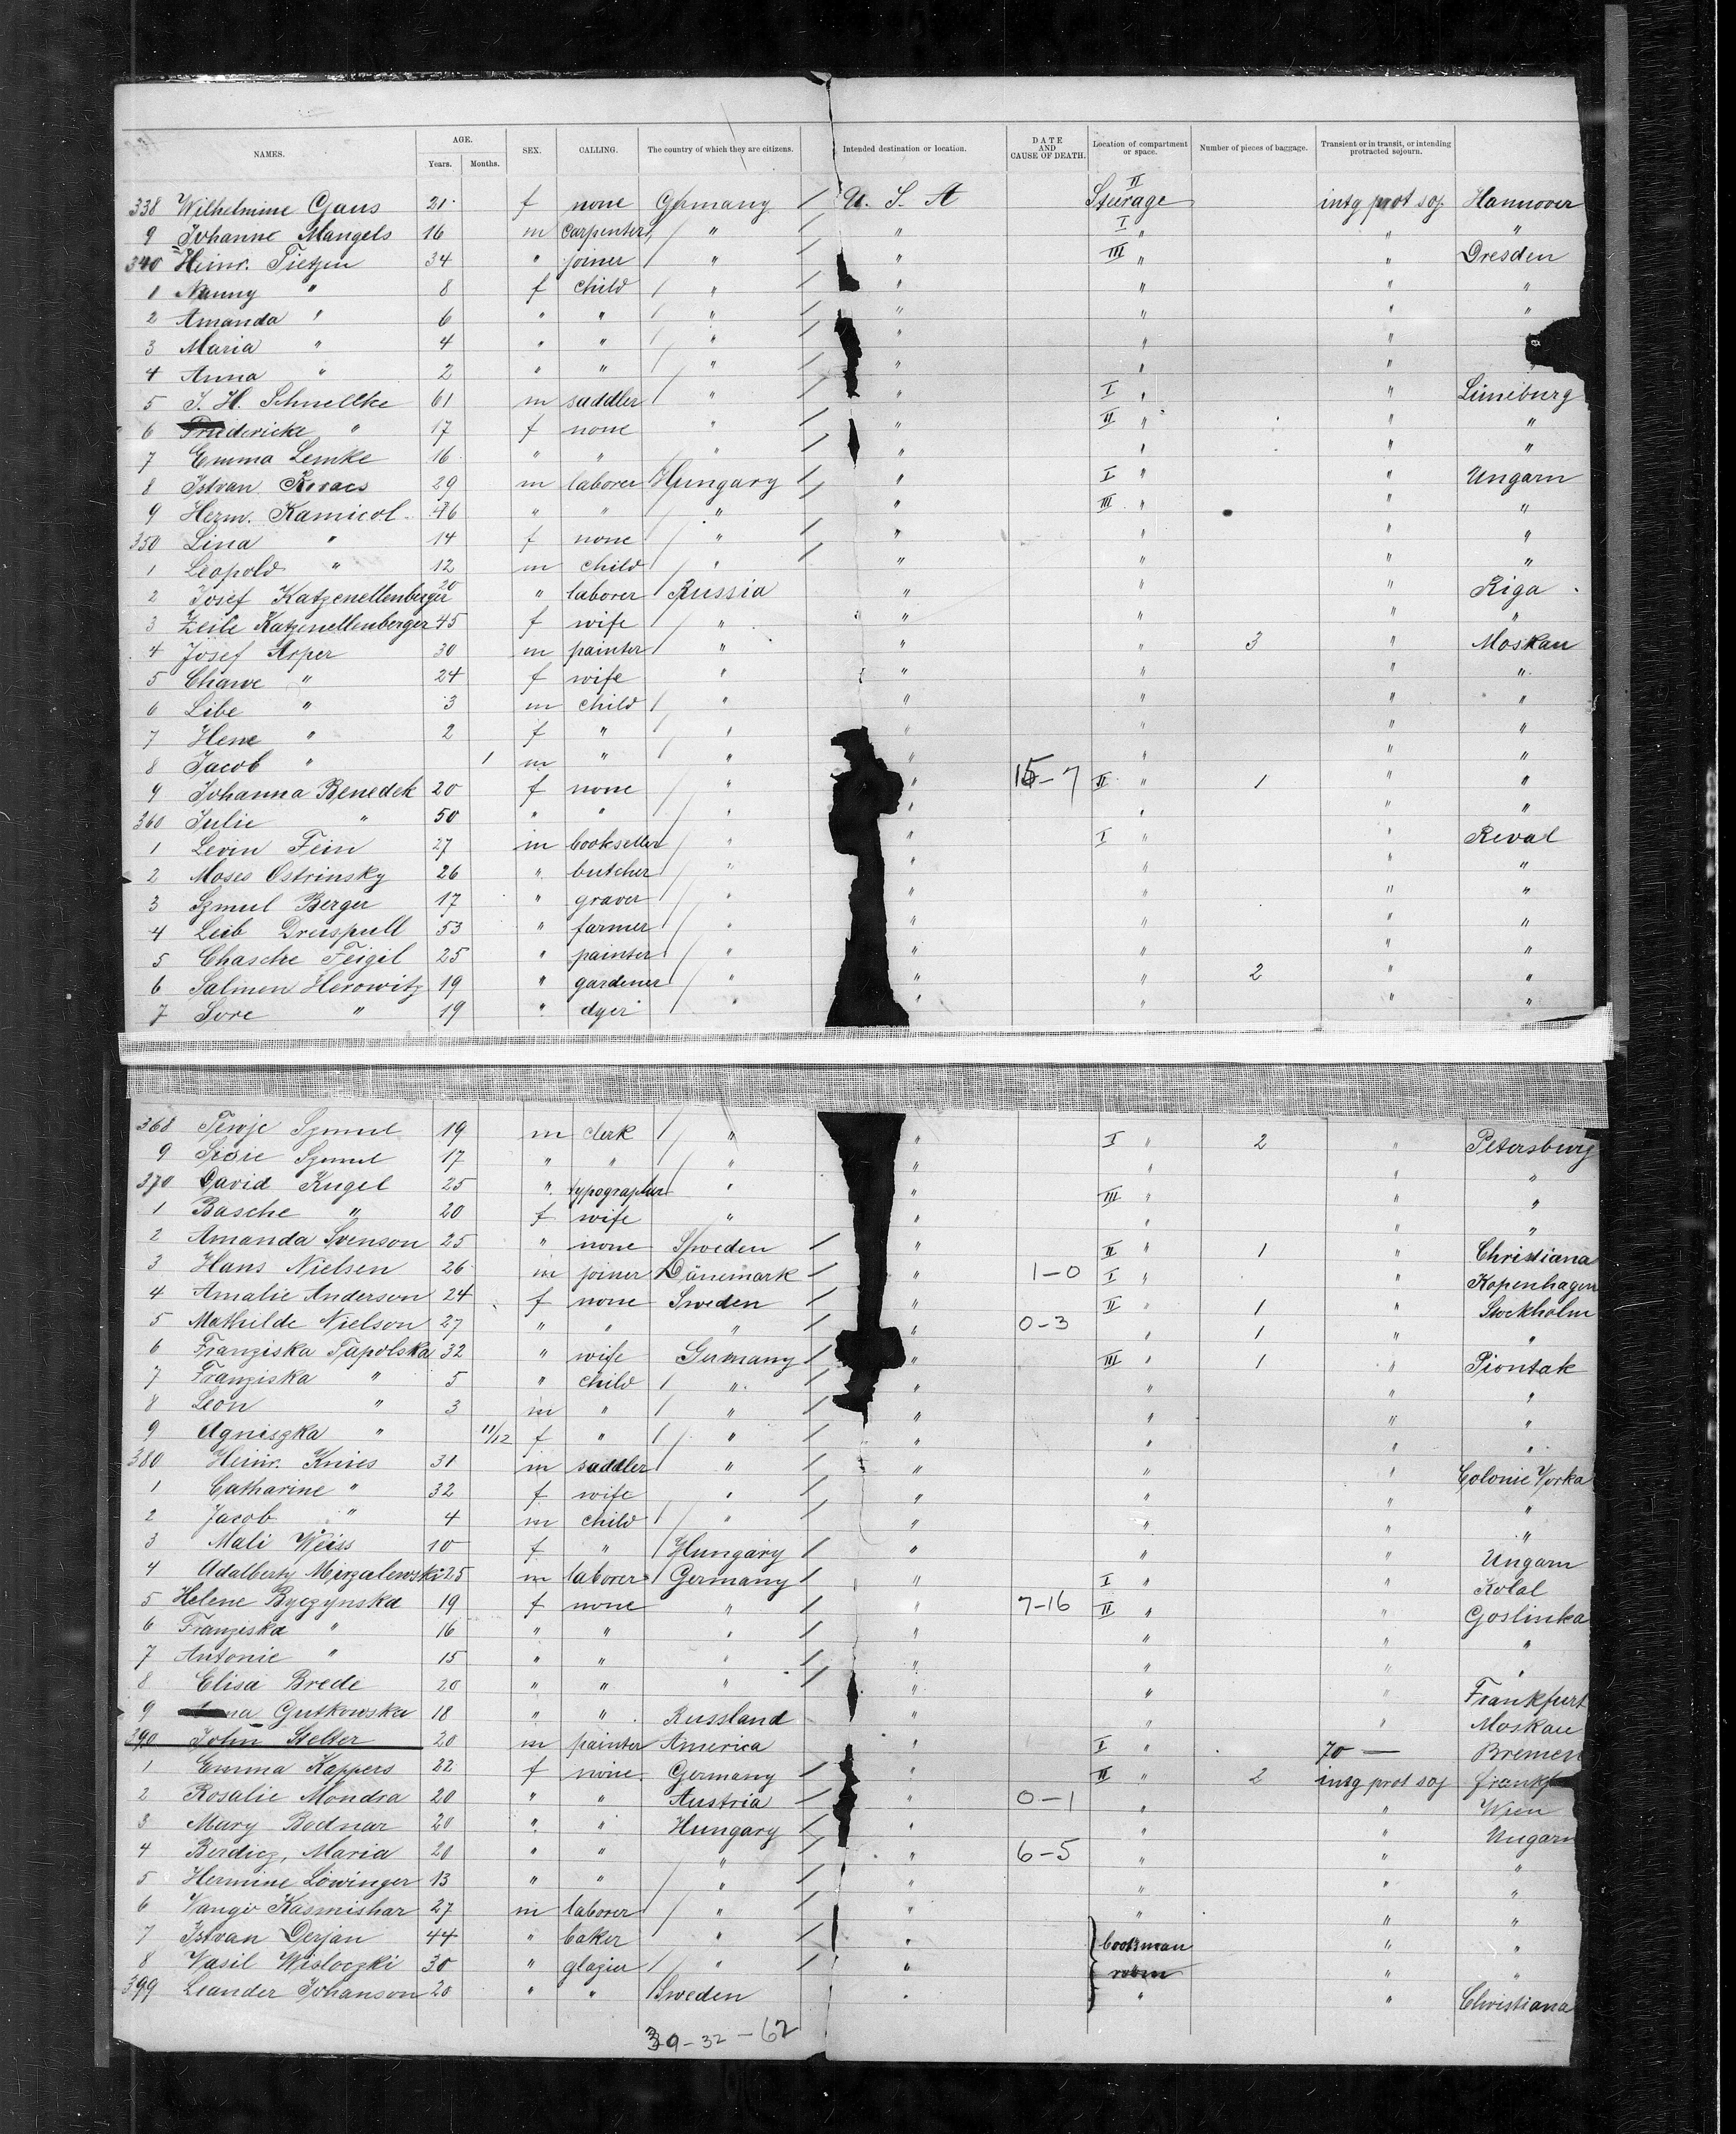 NAMES. AGE. Years. Months. SEX. CALLING. The country of which they are citizens. Intended destination or location. DATE AND CAUSE OF DEATH. Location of compartment or space. Number of pieces of baggage. Transient or in transit, or intending protracted sojourn.
338 Wilhelmine Gaus 21 f none Germany / U. S. A II Steerage intg prot soj Hannover
9 Johanne Mangels 16 m carpenter / " / " I " " "
340 Heinr. Tietzen 34 " joiner / " / " III " " Dresden
1 Nanny " 8 f child / " / " " " "
2 Amanda " 6 " " / " / " " " "
3 Maria " 4 " " / " / " " "
4 Anna " 2 " " / " / " " "
5 J. H. Schnellke 61 m saddler / " / " I " " Lüneburg
6 Friedericke " 17 f none " " II " " "
7 Emma Lemke 16 " " " / " " " "
8 Istvan Kovacs 29 m laborer Hungary / " I " " Ungarn
9 Herm. Kamicol 46 " " " " III " " "
350 Lina " 14 f none / " / " " " "
1 Leopold " 12 m child / " / " " " "
2 Josef Katzenellenberger 20 " laborer / Russia " " " Riga
3 Zeile Katzenellenberger 45 f wife / " " " " "
4 Josef Arper 30 m painter / " " " 3 " Moskau
5 Chawe " 24 f wife " " " " "
6 Libe " 3 m child / " " " " "
7 Hene " 2 f " / " " " " "
8 Jacob " 1 m " / " " " "
9 Johanna Benedek 20 f none / " " 15-7 II " 1 " "
360 Julie " 50 " " / " " " "
1 Levin Fein 27 m bookseller / " " I " " Reval
2 Moses Ostrinsky 26 " butcher / " " " " "
3 Szmul Berger 17 " graver / " " " " "
4 Leib Dreispull 53 " farmer / " " " " "
5 Chasche Feigil 25 " painter / " " " " "
6 Salmen Herowitz 19 " gardener / " " " 2 " "
7 Sore " 19 " dyer / " " " " "
368 Tewje Szmul 19 m clerk / " " I " 2 " Petersburg
9 Szmul 17 " " / " " " " "
370 David Kugel 25 " typographer " " III " " "
1 Basche " 20 f wife " " " " "
2 Amanda Svenson 25 " none Sweden / " II " 1 " Christiana
3 Hans Nielsen 26 m joiner Dänemark / " 1-0 I " " Kopenhagen
4 Amalie Anderson 24 f none Sweden / " II " 1 " Stockholm
5 Mathilde Nielson 27 " " " / " 0-3 " 1 " "
6 Franziska Tapolska 32 " wife Germany / III " 1 " Piontak
7 Franziska " 5 " child / " / " " " "
8 Leon " 3 m " / " / " " " "
9 Agniszka " 11/12 f " / " / " " " "
380 Heinr. Knies 31 m saddler / " / " " " Colonie Vorka
1 Catharine " 32 f wife " / " " " "
2 Jacob " 4 m child / " / " " " "
3 Mali Weiss 10 f " / Hungary / " " " Ungarn
4 Adalberty Mirzalewski 25 m laborer / Germany / " I " " Kolal
5 Helene Byczynska 19 f none " / " 7-16 II " " Goslinka
6 Franziska " 16 " " " / " " " "
7 Antonie " 15 " " " / " " " "
8 Elisa Brede 20 " " " / " " " Frankfurt
9 Gutkowska 18 " " Russland " " " Moskau
390 John Stelter 20 m painter America " I " 70 — Bremen
1 Emma Kappers 22 f none Germany / " II " 2 intg prot soj
2 Rosalie Mondra 20 " " Austria / " 0-1 " " Wien
3 Mary Bodnar 20 " " Hungary / " " " Ungarn
4 Berdicz, Maria 20 " " " / " 6-5 " " "
5 Hermine Löwinger 13 " " / " / " " " "
6 Kasmishar 27 m laborer / " / " " " "
7 Istvan Derjan 44 " baker / " / " bootsman " "
8 Wasil Wisloczki 30 " glazier / " / " room " "
399 Leander Johanson 20 " " / Sweden " " " Christiana
39-32-62